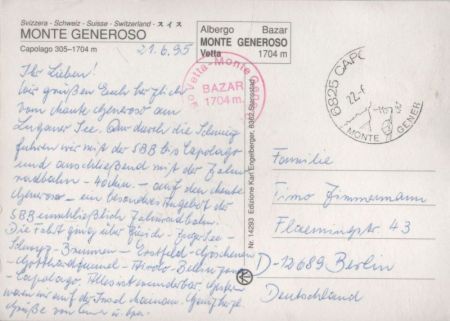 Svizzera - Schweiz - Suisse - Switzerland - スイス
MONTE GENEROSO
Capolago 305–1704 m
21.6.95
Albergo Bazar
MONTE GENEROSO
Vetta 1704 m
Vetta-Monte G
BAZAR
1704 m.
6825 CAPO
22.-6
MONTE GENER
Ihr Lieben!
Wir grüßen Euch herzlichst
vom Monte Generoso am
Luganer See. Quer durch die Schweiz
fuhren wir mit der SBB bis Capolago
und anschließend mit der Zahn-
radbahn - - auf den Monte
Generoso - ein besonderes Angebot der
SBB einschließlich Zahnradbahn.
Die Fahrt ging über Zürich - Zuger See -
Schwyz - Brunnen - Erstfeld - Göschenen
- Gotthardtunnel - Airolo - Bellinzona
- Capolago. Alles ist wunderbar. Gestern
waren wir auf der Insel Mainau. Ganz herzl.
Grüße von
Nr. 14293 Edizione Karl Engelberger, 8362 Stansstad
Familie
Timo Zimmermann
Flaemingstr 43
D-12689 Berlin
Deutschland